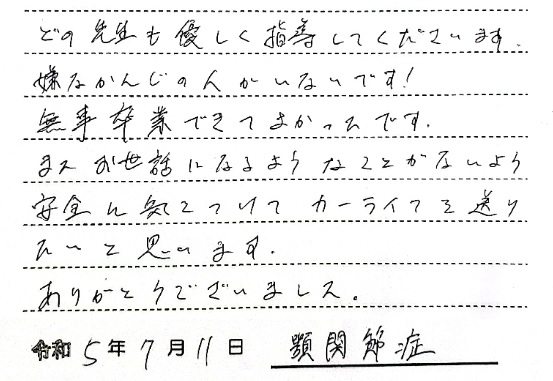 どの先生も優しく指導してくださいます。
嫌なかんじの人がいないです!
無事卒業できてよかったです。
またお世話になるようなことがないよう
安全に気をつけてカーライフを送り
たいと思います。
ありがとうございました。
令和5年7月11日 顎関節症